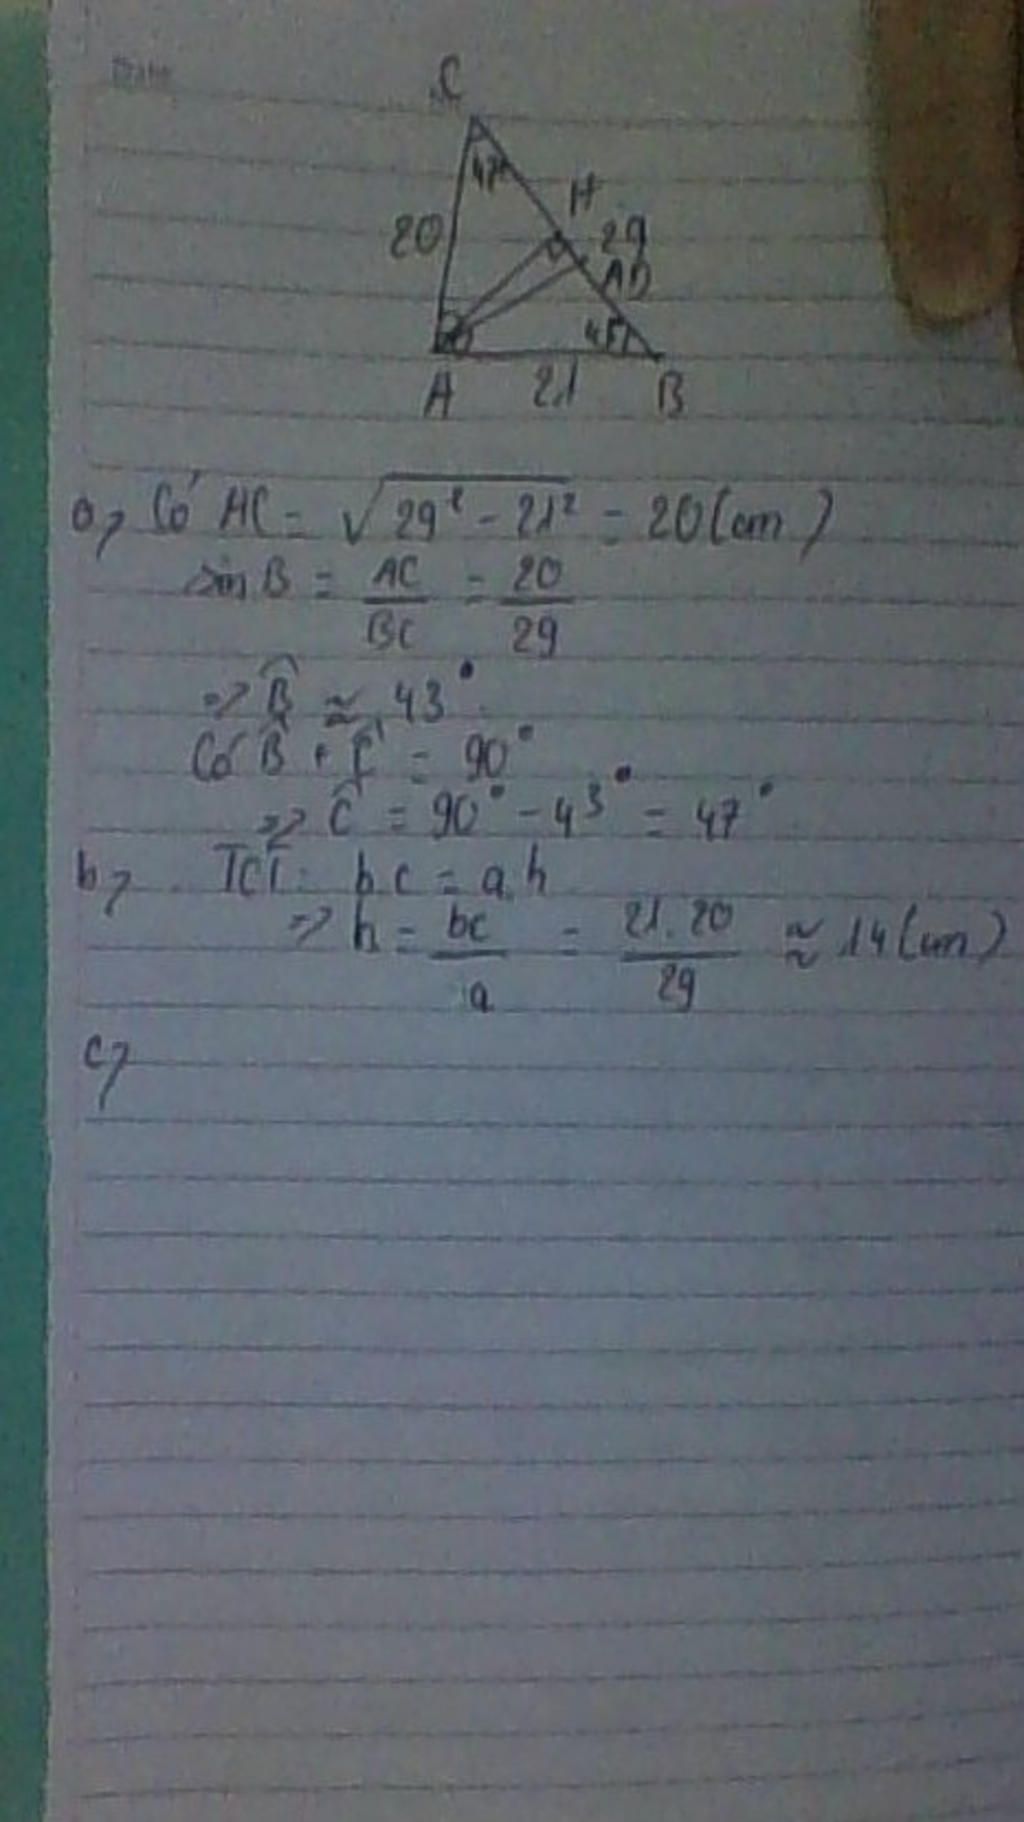 C
47°
H
20
29
D
A
21
B
a, Có AC = √29² - 21² = 20 (cm)
sin B = AC/BC = 20/29
=> B̂ ≈ 43°
Có B̂ + Ĉ = 90°
=> Ĉ = 90° - 43° = 47°
b, TCT: bc = a.h
=> h = bc/a = 21.20/29 ≈ 14 (cm)
c,